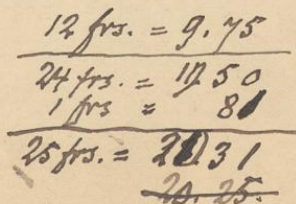 12 frs. = 9.75
24 frs. = 19.50
1 frs = 81
25 frs. = 20.31
20.25.